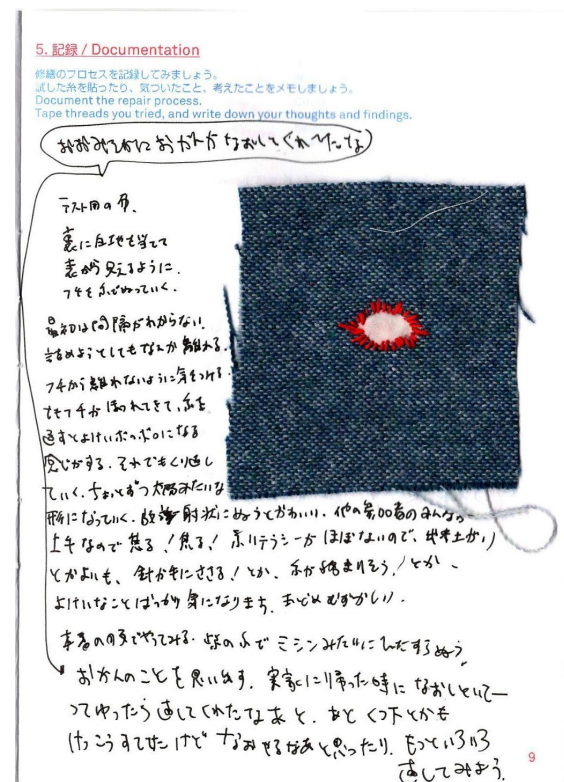 5. 記録 / Documentation
修繕のプロセスを記録してみましょう。
試した糸を貼ったり、気づいたこと、考えたことをメモしましょう。
Document the repair process.
Tape threads you tried, and write down your thoughts and findings.
テスト用の布、
裏に白地を当てて
表から見えるように、
フチを糸でぬっていく。
最初は間隔がわからない。
詰めようとしてもなんか離れる。
フチから離れないように気をつける
でもフチが ほつれてきて、糸を
通すとよけいボロボロになる
感じがする。それでもくり返し
ていく。ちょっとずつ太陽みたいな
形になっていく。放射状にぬうとかわいい。他の参加者のみんな
上手なので焦る!焦る!
とかよりも、針が手にささる!とか、糸が絡まりそう!とか、
よけいなことばっかり気になります。むずかしい。
本番の でやってみる。 の糸で ミシンみたいに ひたすらぬう
おかんのことを思い出す。実家に帰った時に なおしといてー
ってゆったら直してくれたなあ と。あと くつ下とかも
けっこうすてた けど なあと思ったり。もっといろいろ
直してみよう。
9